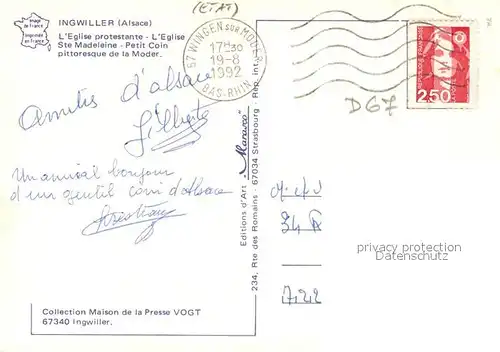 Image
de France
Imprimée
en France
INGWILLER (Alsace)
L'Eglise protestante - L'Eglise
Ste Madeleine - Petit Coin
pittoresque de la Moder.
(ETAT)
67 WINGEN SUR MODER
17H30
19-8
1992
BAS-RHIN
2,50
D67
Amitiés d'alsace
Gilberte
Un amical bonjour
d'un gentil coin d'Alsace
Editions d'Art
234, Rte des Romains - 67034 Strasbourg - Rep. int.
M. et
34
privacy protection
Datenschutz
Collection Maison de la Presse VOGT
67340 Ingwiller.